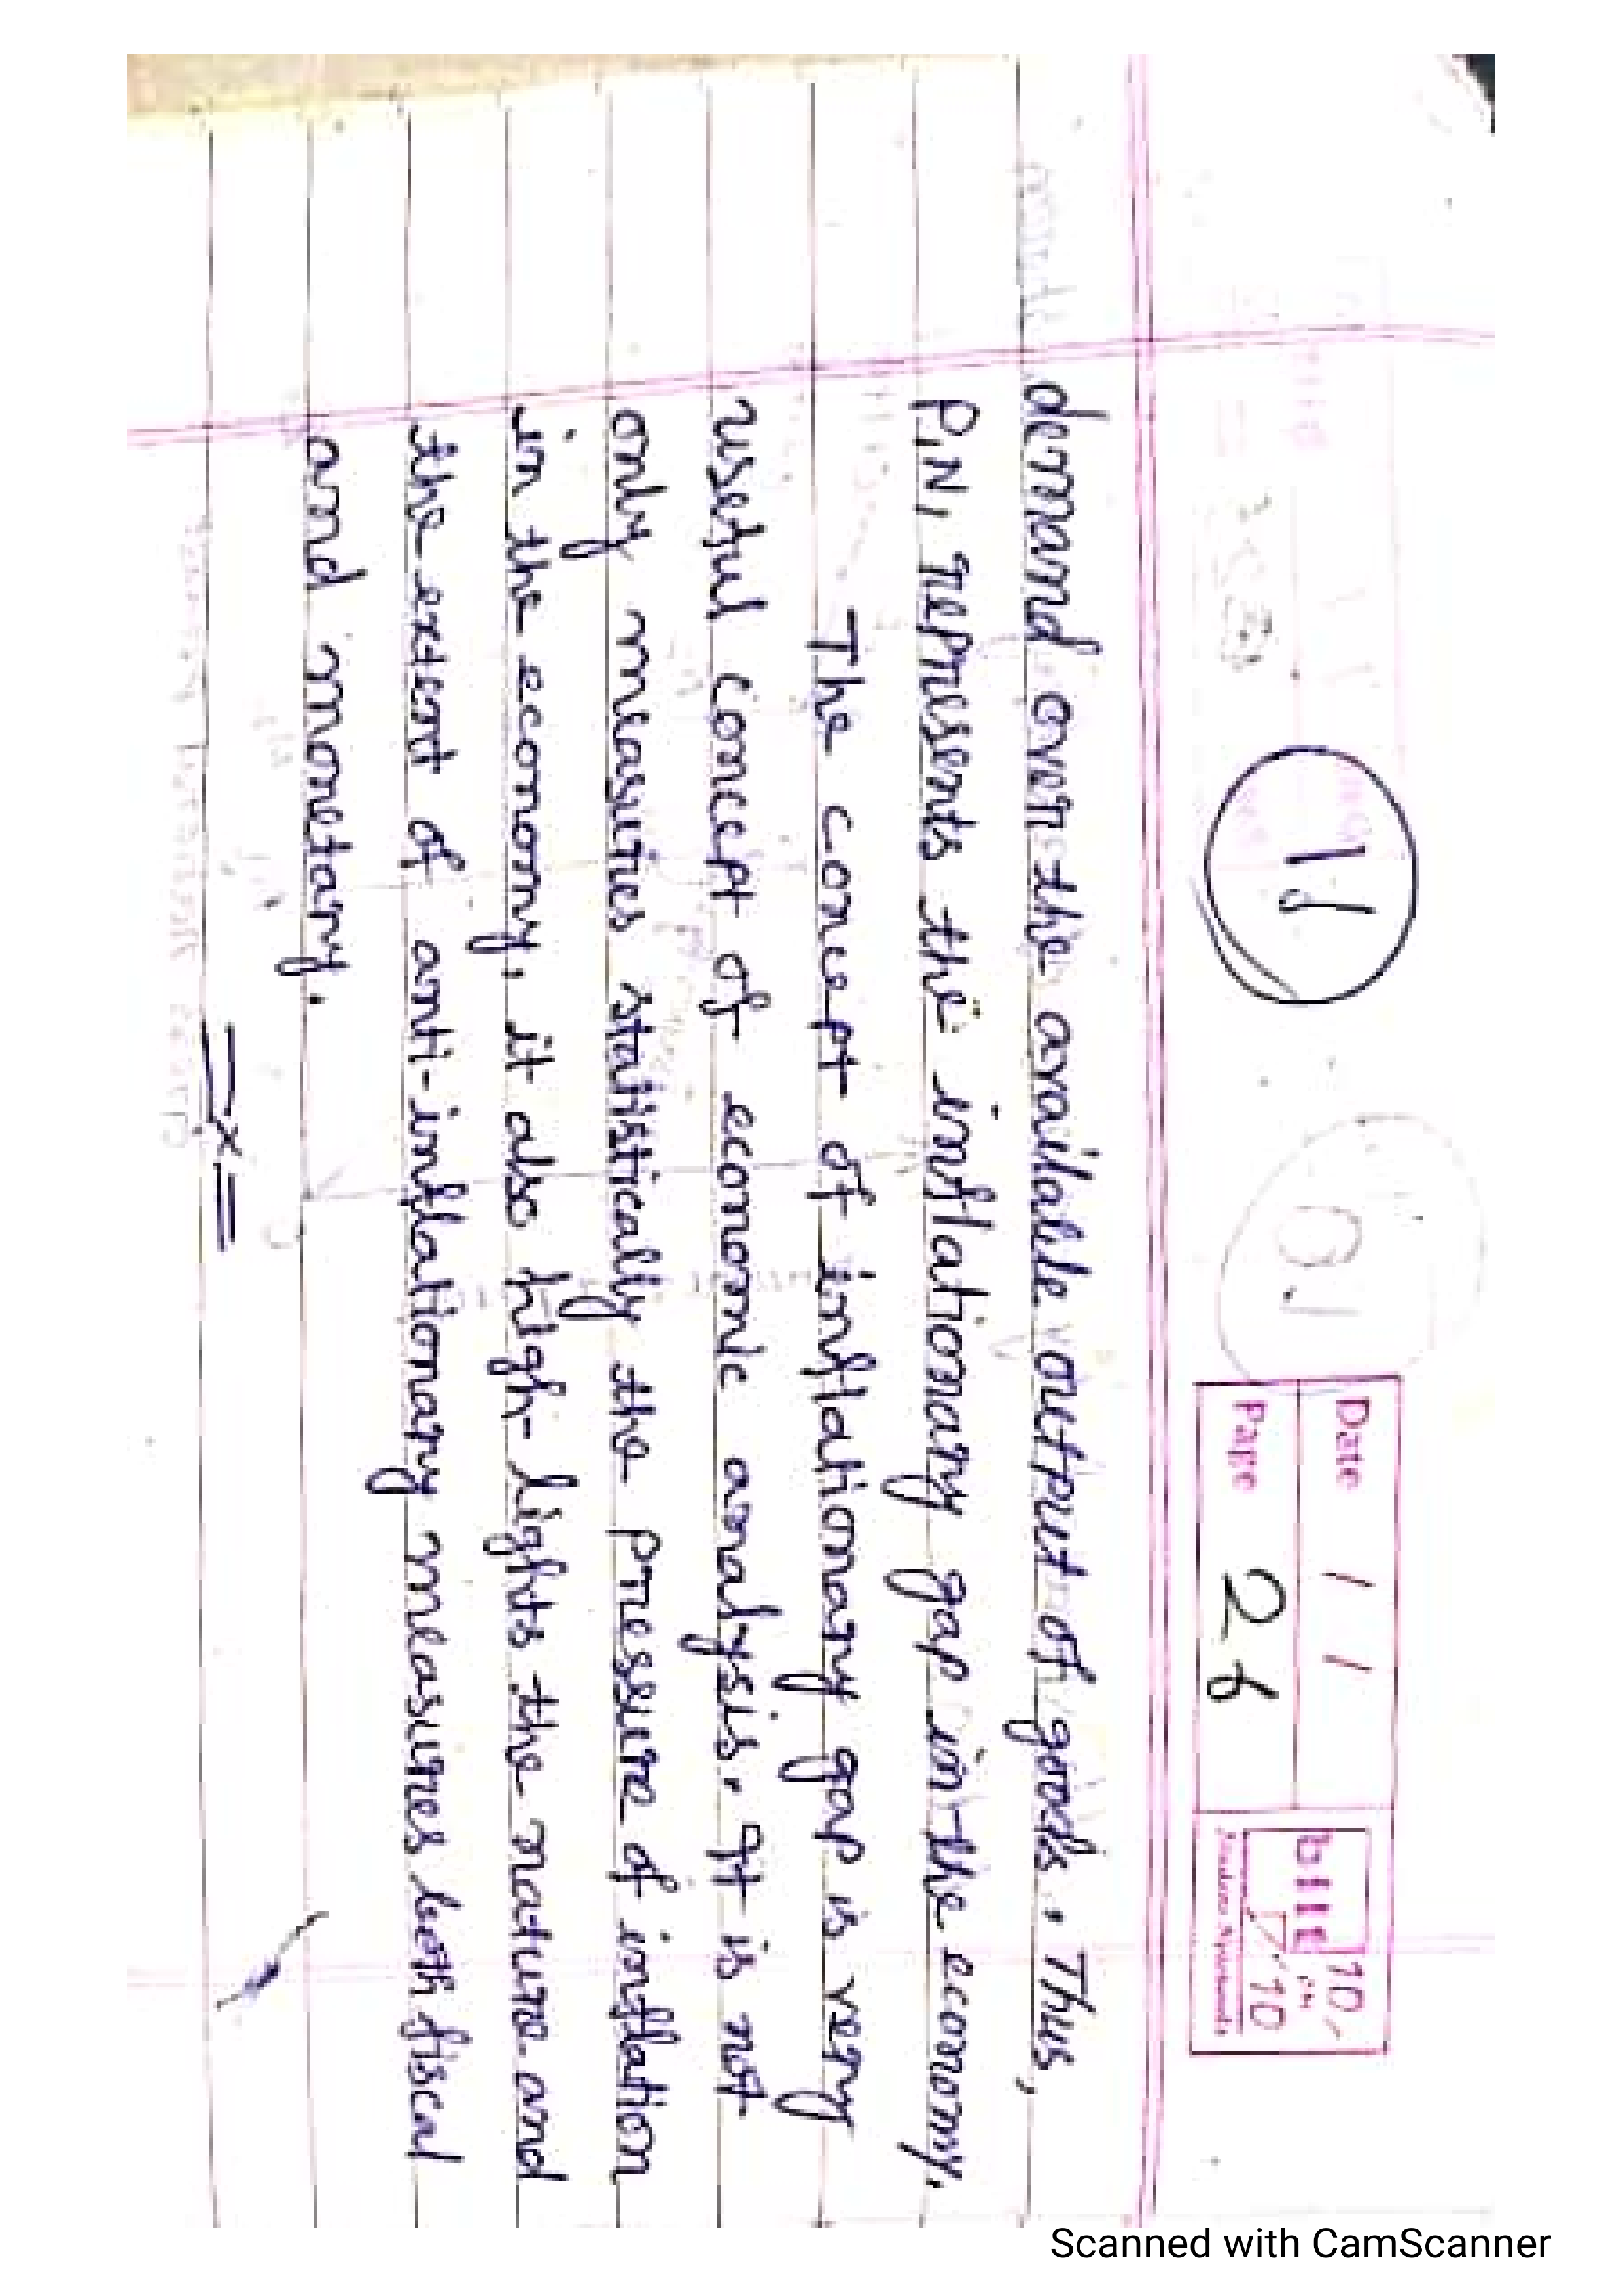 11
Date / /
Page 26
demand over the available output of goods. Thus,
P,N, represents the inflationary gap in the economy.
The concept of inflationary gap is very
useful concept of economic analysis. It is not
only measures statistically the pressure of inflation
in the economy, it also high-lights the nature and
the extent of anti-inflationary measures both fiscal
and monetary.
=x=
Scanned with CamScanner